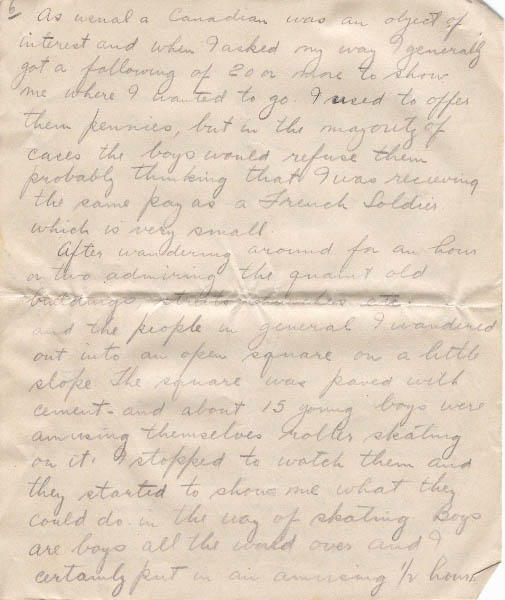 6
As usual a Canadian was an object of
interest and when I asked my way I generally
got a following of 20 or more to show
me where I wanted to go. I used to offer
them pennies, but in the majority of
cases the boys would refuse them
probably thinking that I was recieving
the same pay as a French Soldier
which is very small.
After wandering around for an hour
or two admiring the quaint old
buildings streets etc.
and the people in general I wandered
out into an open square on a little
slope The square was paved with
cement - and about 15 young boys were
amusing themselves roller skating
on it. I stopped to watch them and
they started to show me what they
could do in the way of skating Boys
are boys all the world over and I
certainly put in an amusing 1/2 hour.